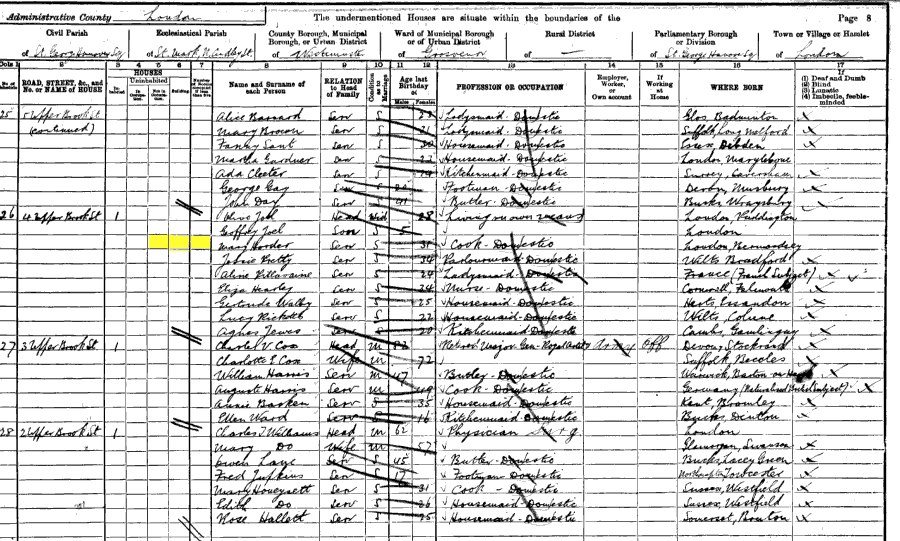 Administrative County London The undermentioned Houses are situate within the boundaries of the Page 8
Civil Parish Ecclesiastical Parish County Borough, Municipal Borough, or Urban District Ward of Municipal Borough or of Urban District Rural District Parliamentary Borough or Division Town or Village or Hamlet
of St. George Hanover Sq of St. Mark, N. Audley St. of Westminster of Grosvenor of — of St. George Hanover Sq of London
ROAD, STREET, &c., and No. or NAME of HOUSE HOUSES Name and Surname of each Person RELATION to Head of Family Condition as to Marriage Age last Birthday of PROFESSION OR OCCUPATION Employer, Worker, or Own account If Working at Home WHERE BORN If (1) Deaf and Dumb (2) Blind (3) Lunatic (4) Imbecile, feeble-minded
25 5 Upper Brook St Alice Barnard Ser S 27 Ladysmaid - Domestic Glos, Badminton
(continued) Mary Brown Ser S 21 Ladysmaid - Domestic Suffolk, Long Melford
Fanny Sant Ser S 30 Housemaid - Domestic Essex, Debden
Martha Gardner Ser S 22 Housemaid - Domestic London, Marylebone
Ada Cleeter Ser S Kitchenmaid - Domestic Surrey, Caversham
George Gay Ser S Footman - Domestic Derby, Musbury
John Day Ser S 41 Butler - Domestic Bucks, Wraysbury
26 4 Upper Brook St 1 Olive Joel Head Wid 28 Living on own means London, Paddington
Geoffrey Joel Son S 5 London
Mary Horder Ser S 31 Cook - Domestic London, Bermondsey
Pretty Ser S 34 Parlourmaid - Domestic Wilts, Bradford
Aline Villavaine Ser S 24 Ladysmaid - Domestic France (French Subject)
Eliza Hearley Ser S 24 Nurse - Domestic Cornwall, Falmouth
Gertrude Walby Ser S 25 Housemaid - Domestic Herts, Essendon
Lucy Ricketts Ser S 22 Housemaid - Domestic Wilts, Colune
Agnes Jewes Ser S 20 Kitchenmaid - Domestic Cambs, Gamlingay
27 3 Upper Brook St 1 Charles V. Cox Head M 82 Retired Major Gen - Royal Artil Army Off Devon,
Charlotte E Cox Wife M 72 Suffolk, Beccles
William Harris Ser M 47 Butler - Domestic Warwick, Barton on Heath
Augusta Harris Ser M 49 Cook - Domestic Germany (Naturalised British Subject)
Annie Barken Ser S 35 Housemaid - Domestic Kent, Bromley
Ellen Ward Ser S 16 Kitchenmaid - Domestic Bucks, Dinton
28 2 Upper Brook St 1 Charles T Williams Head M 62 Physician London
Mary Do Wife M 57 Glamorgan, Swansea
Owen Lane Ser S 45 Butler - Domestic Bucks, Lacey Green
Fred Jupkins Ser S 17 Footman - Domestic Northampton, Towcester
Mary Honeysett Ser S 31 Cook - Domestic Sussex, Westfield
Edith Do Ser S 26 Housemaid - Domestic Sussex, Westfield
Rose Hallett Ser S 25 Housemaid - Domestic Somerset,